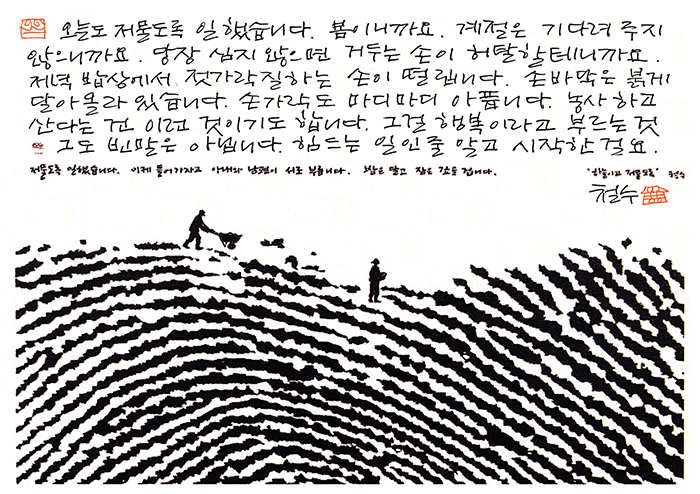 오늘도 저물도록 일 했습니다. 봄이니까요. 계절은 기다려 주지
않으니까요. 당장 심지 않으면 거두는 손이 허탈할테니까요.
저녁 밥상에서 젓가락질하는 손이 떨립니다. 손바닥은 붉게
달아올라 있습니다. 손가락도 마디마디 아픕니다. 농사 하고
산다는 건 이런 것이기도 합니다. 그걸 행복이라고 부르는 것
그도 빈말은 아닙니다. 힘드는 일인줄 알고 시작한 걸요.
저물도록 일했습니다. 이제 들어가자고 아내와 남편이 서로 부릅니다. 밤은 깊고 잠은 깊을 겁니다. 철수
철수